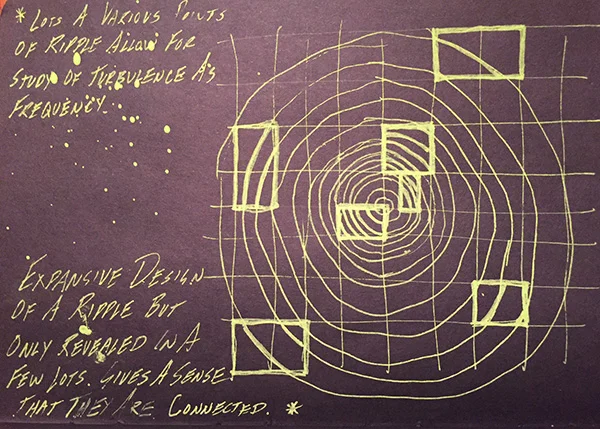 * LOTS A VARIOUS POINTS
OF RIPPLE ALLOW FOR
STUDY OF TURBULENCE AS
FREQUENCY.
EXPANSIVE DESIGN
OF A RIPPLE BUT
ONLY REVEALED IN A
FEW LOTS. GIVES A SENSE
THAT THEY ARE CONNECTED. *